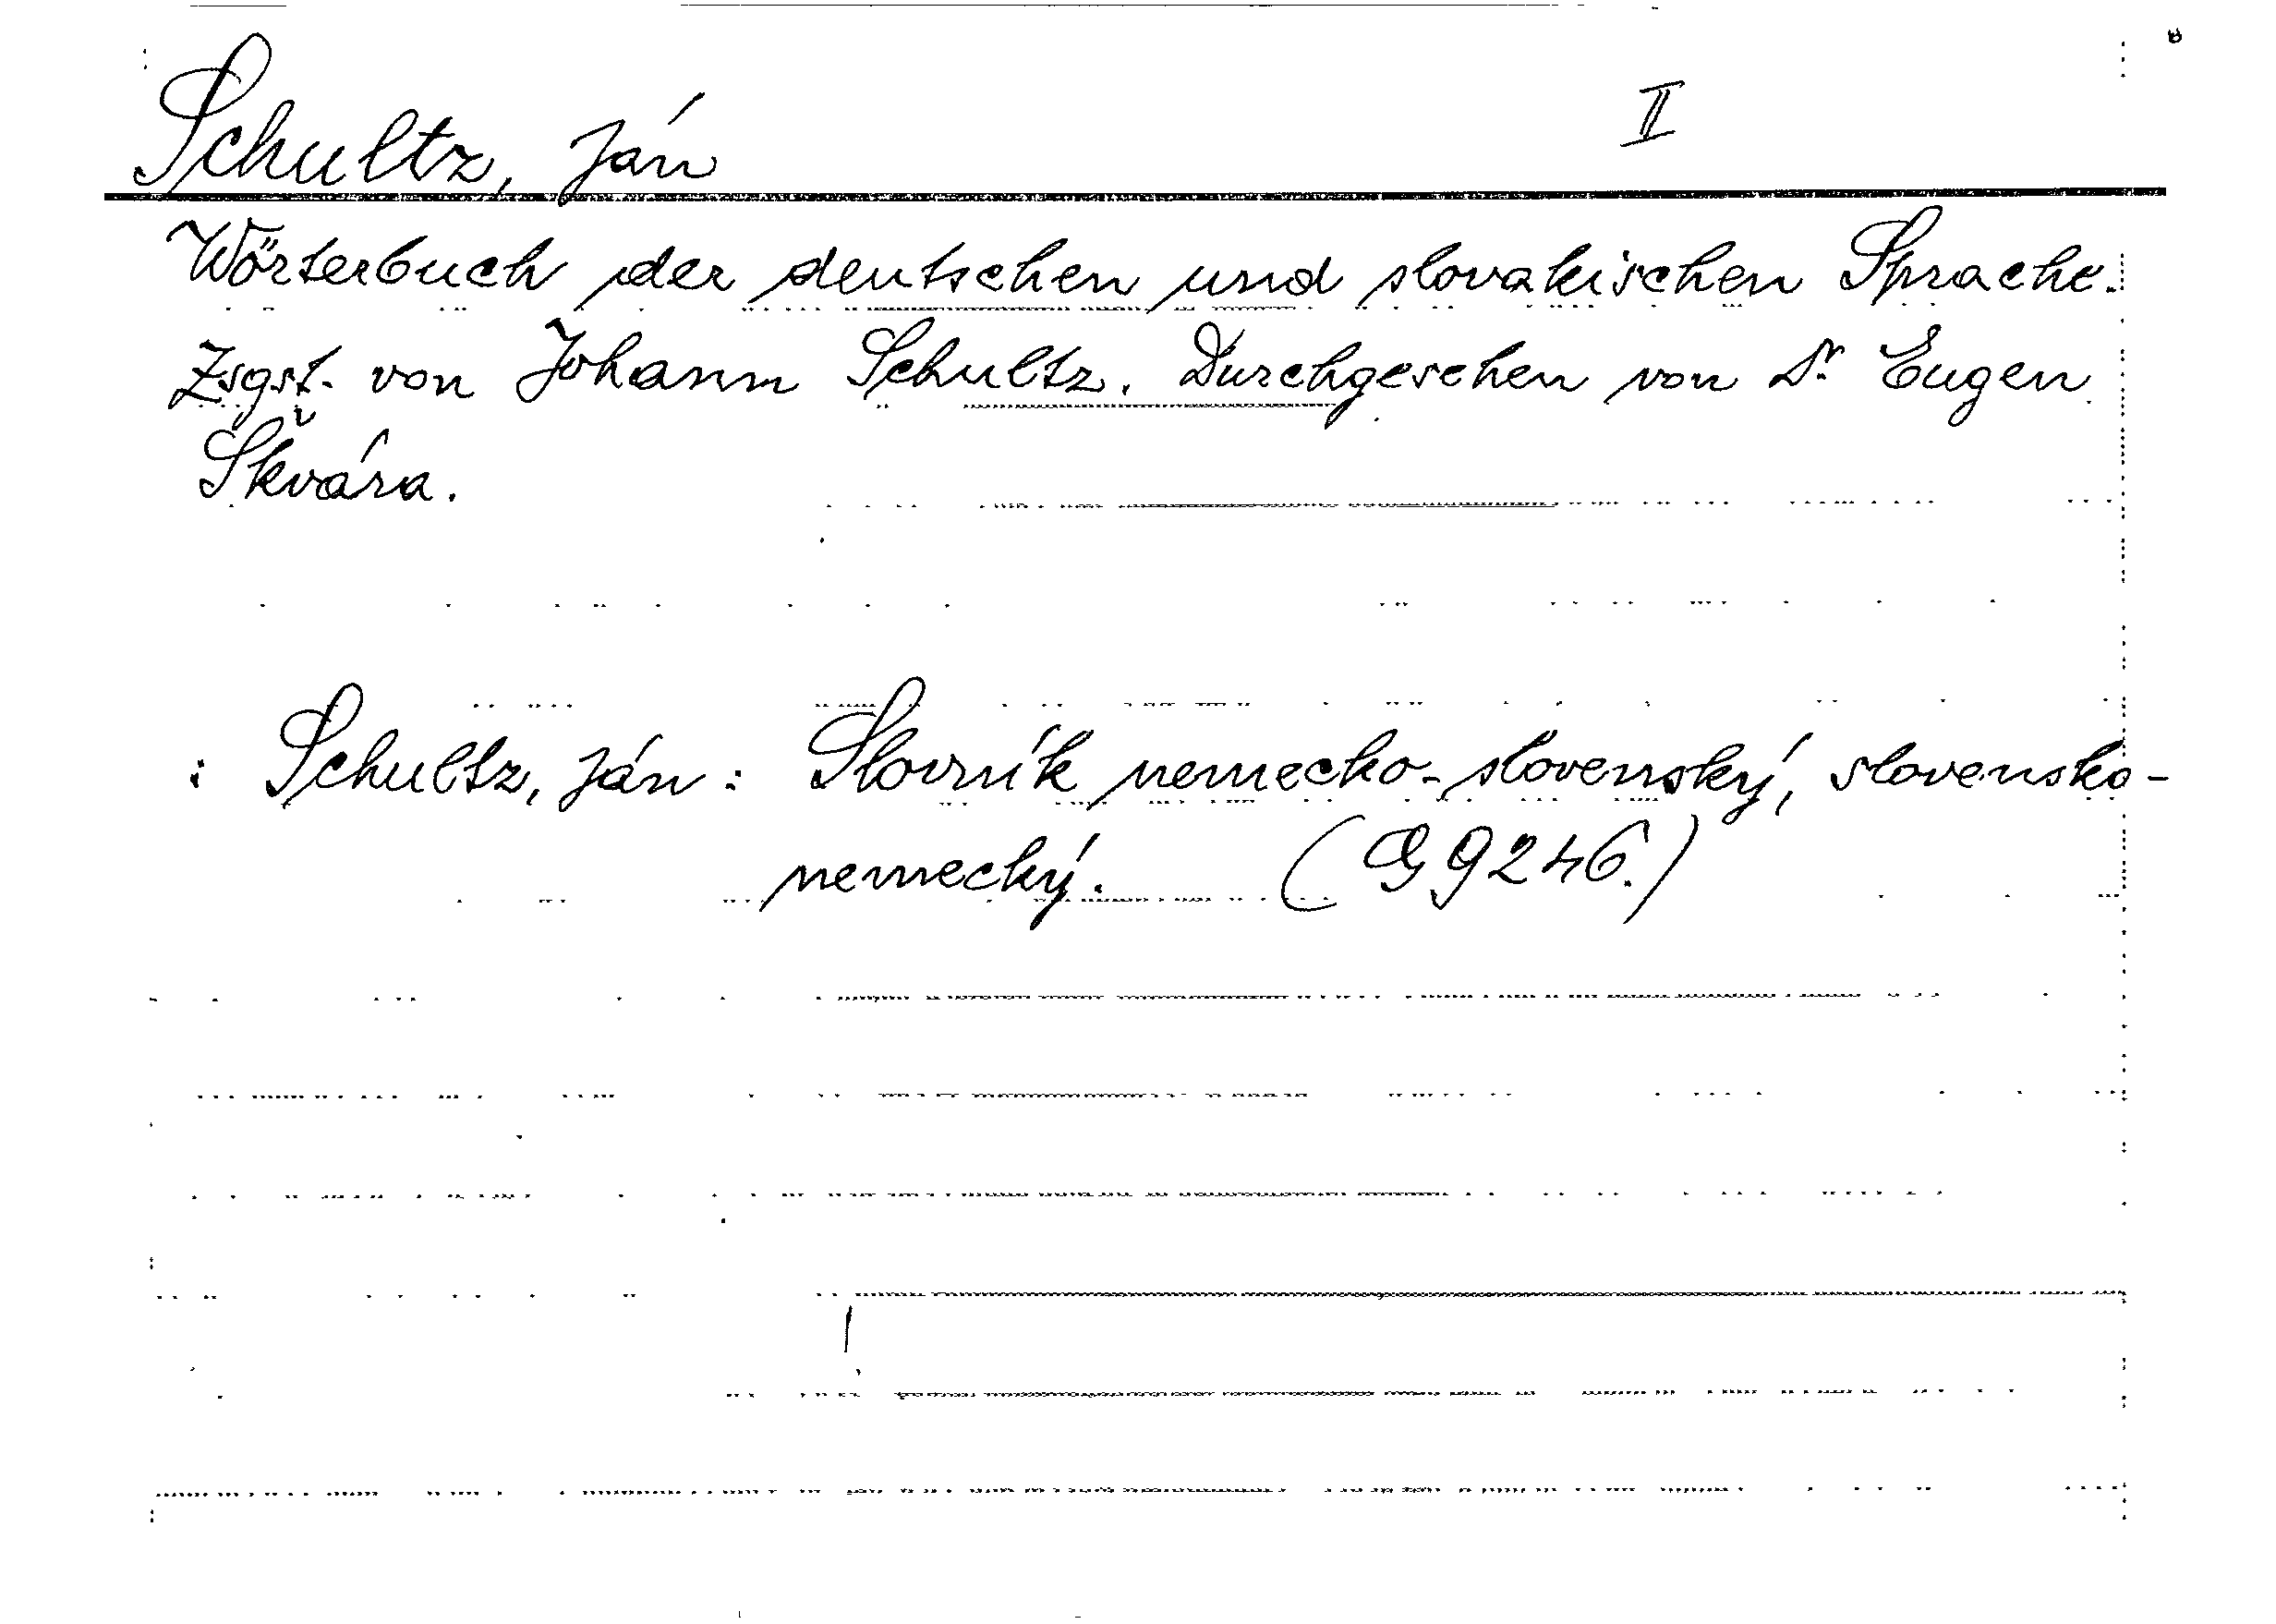 Schultz, Ján II
Wörterbuch der deutschen und slovakischen Sprache.
Zsgst. von Johann Schultz. Durchgesehen von Dr. Eugen
Škvára.
: Schultz, Ján : Slovník nemecko-slovenský, slovensko-
nemecký. (G 9246.)